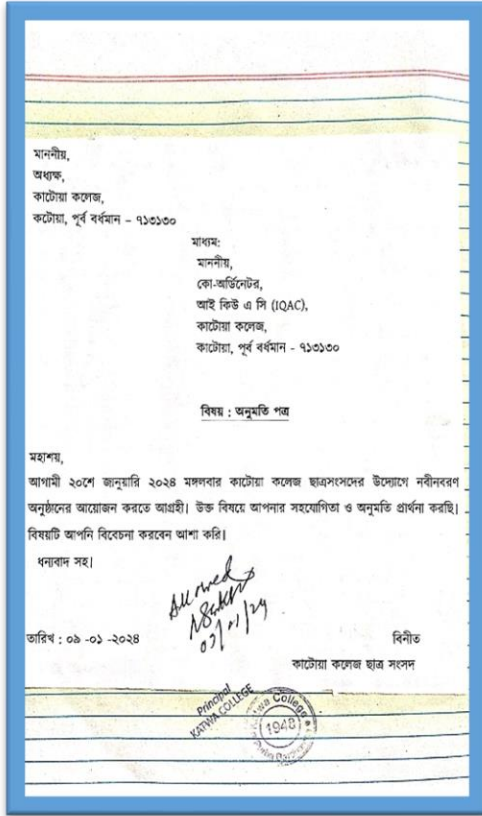 মাননীয়,
অধ্যক্ষ,
কাটোয়া কলেজ,
কটোয়া, পূর্ব বর্ধমান – ৭১৩১৩০
মাধ্যম:
মাননীয়,
কো-অর্ডিনেটর,
আই কিউ এ সি (IQAC),
কাটোয়া কলেজ,
কাটোয়া, পূর্ব বর্ধমান - ৭১৩১৩০
বিষয় : অনুমতি পত্র
মহাশয়,
আগামী ২০শে জানুয়ারি ২০২৪ মঙ্গলবার কাটোয়া কলেজ ছাত্রসংসদের উদ্যোগে নবীনবরণ
অনুষ্ঠানের আয়োজন করতে আগ্রহী। উক্ত বিষয়ে আপনার সহযোগিতা ও অনুমতি প্রার্থনা করছি।
বিষয়টি আপনি বিবেচনা করবেন আশা করি।
ধন্যবাদ সহ।
Allowed
তারিখ : ০৯ -০১ -২০২৪
বিনীত
কাটোয়া কলেজ ছাত্র সংসদ
Principal
KATWA COLLEGE
Katwa College
1948